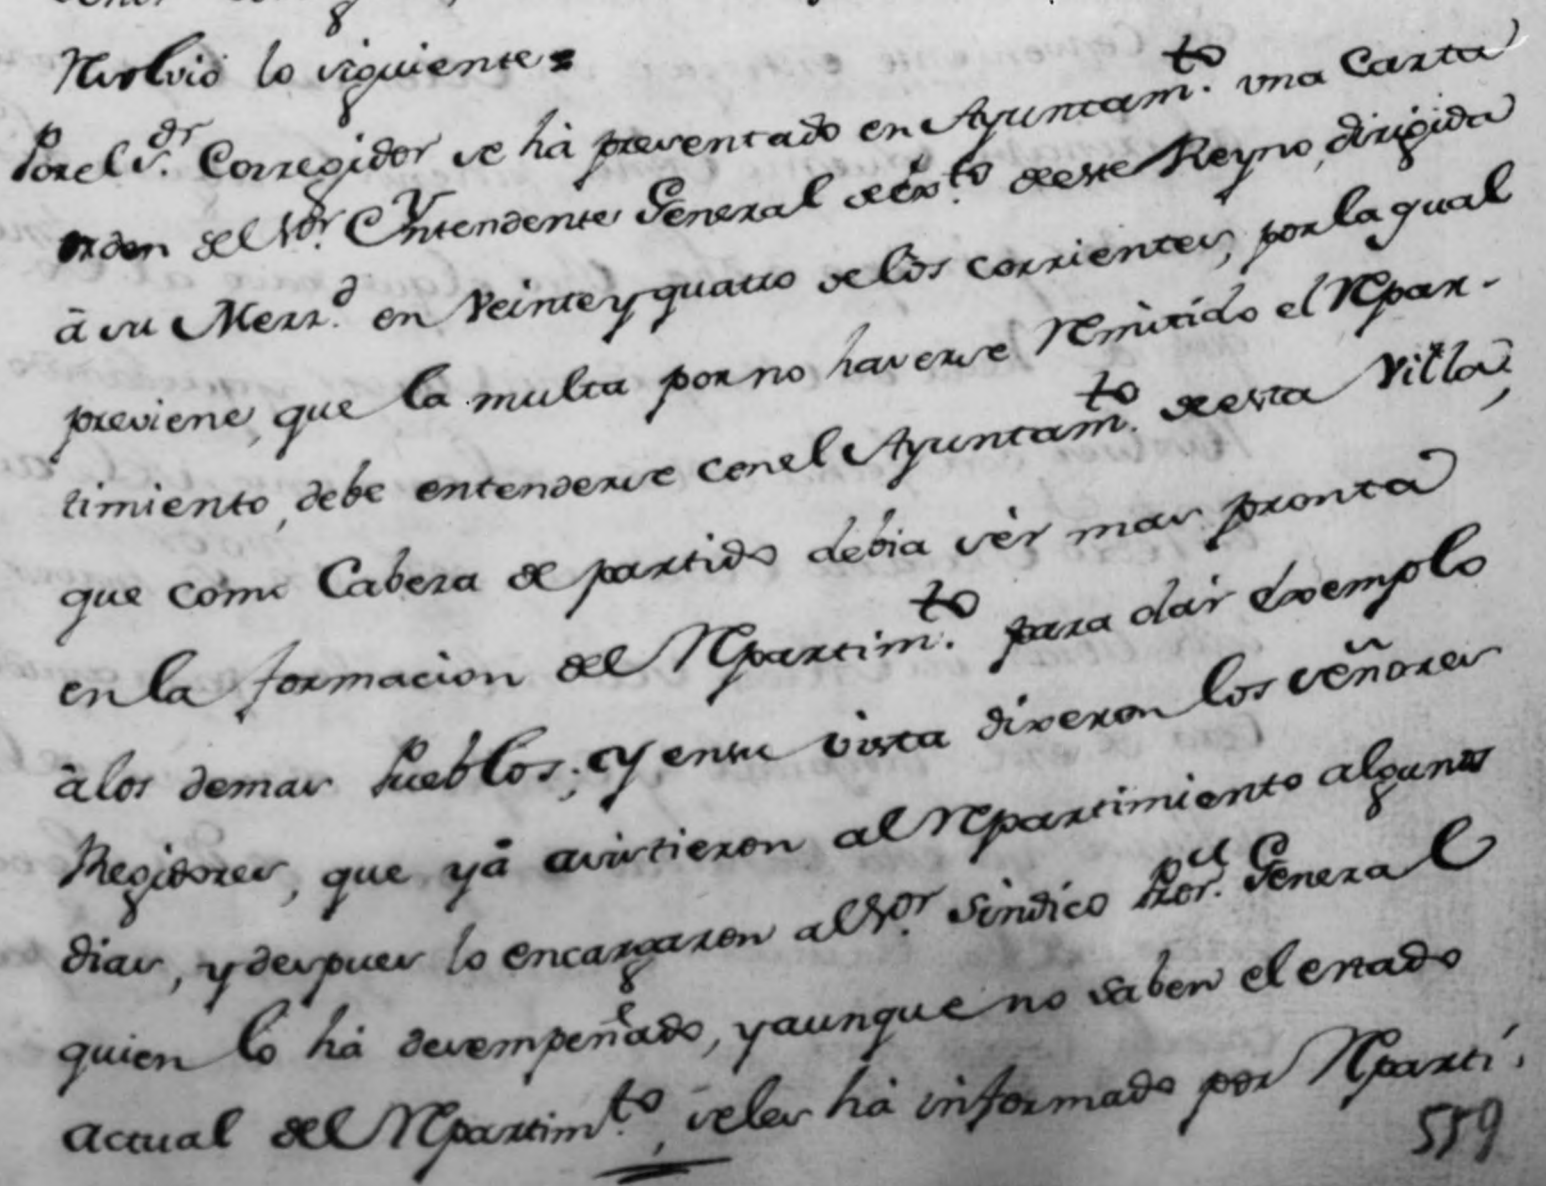 Resolvió lo siguiente=
Por el S.ʳ Corregidor se há presentado en Ayuntam.ᵗᵒ vna Carta
orden del S.ᵒʳ Yntendente General de Ex.ᵗᵒ de este Reyno, dirigida
á su Merz.ᵈ en Veinte y quatro de los corrientes, por la qual
previene, que la multa por no haverse Remitido el Repar-
timiento, debe entenderse con el Ayuntam.ᵗᵒ de esta Villa,
que como Cabeza de partido debia sér mas pronta
en la formacion del Repartim.ᵗᵒ para dár exemplo
á los demas Pueblos; Y en su vista dixeron los señores
Regidores, que yá asistieron al Repartimiento algunos
dias, y despues lo encargaron al S.ᵒʳ Sindico Pror. General
quien lo há desempeñado, y aunque no saben el estado
actual del Repartim.ᵗᵒ, se les há informado por Reparti-
559